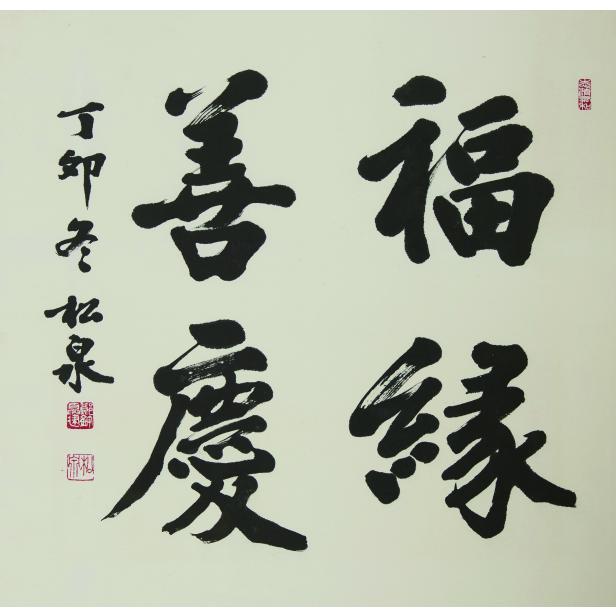 福緣
善慶
丁卯冬松泉